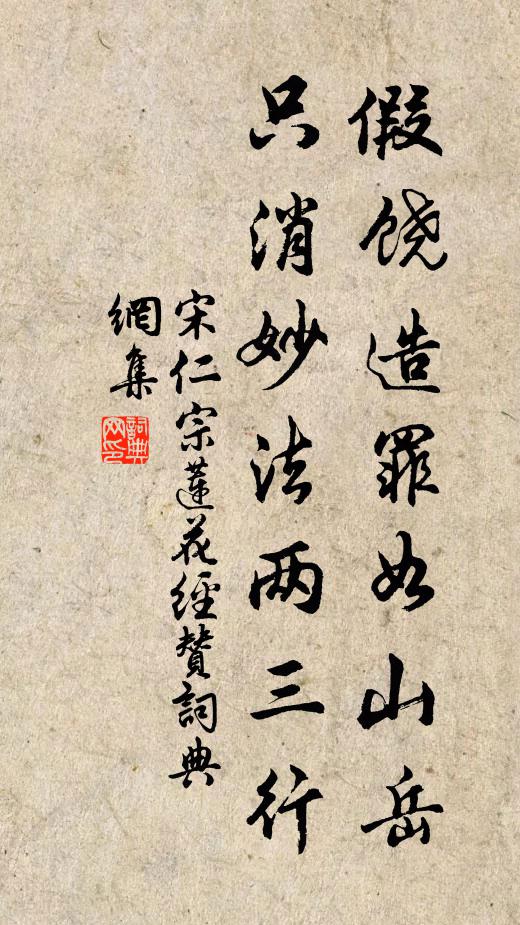 假饶造罪如山岳
只消妙法两三行
宋仁宗蓮花經贊詞典
網集
詞典网印